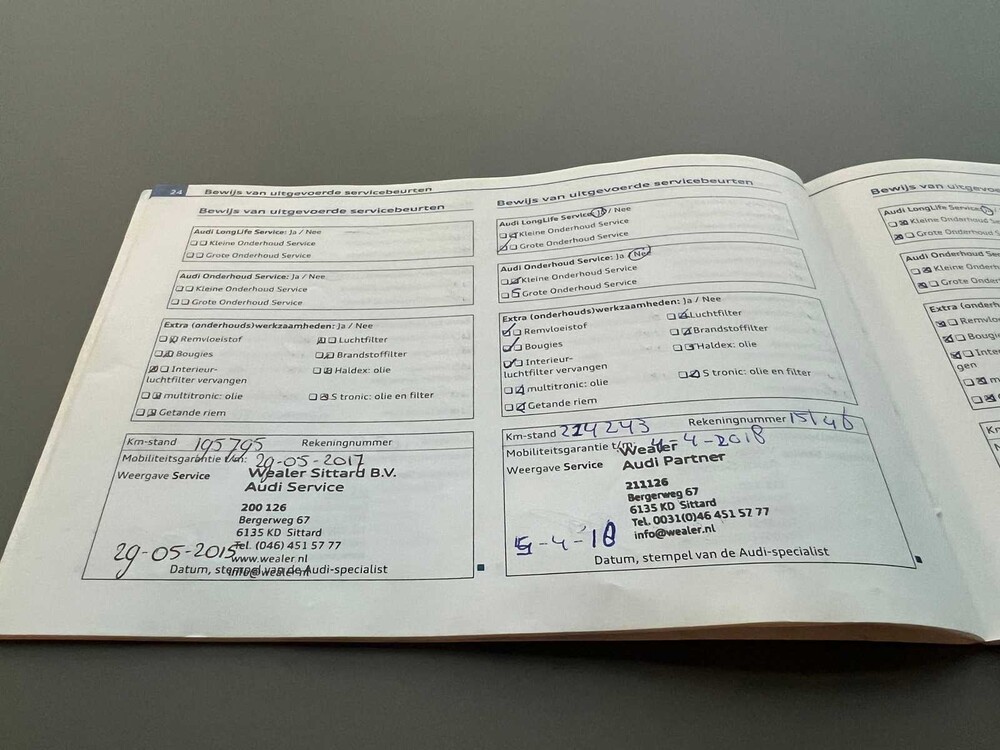 24 Bewijs van uitgevoerde servicebeurten
Bewijs van uitgevoerde servicebeurten
Audi LongLife Service: Ja / Nee
Kleine Onderhoud Service
Grote Onderhoud Service
Audi Onderhoud Service: Ja / Nee
Kleine Onderhoud Service
Grote Onderhoud Service
Extra (onderhouds)werkzaamheden: Ja / Nee
Remvloeistof Luchtfilter
Bougies Brandstoffilter
Interieur- Haldex: olie
luchtfilter vervangen
multitronic: olie S tronic: olie en filter
Getande riem
Km-stand 195795 Rekeningnummer
Mobiliteitsgarantie t/m: 29-05-2017
Weergave Service Wealer Sittard B.V.
Audi Service
200 126
Bergerweg 67
6135 KD Sittard
Tel. (046) 451 57 77
29-05-2015 www.wealer.nl
Datum, stempel van de Audi-specialist
info@wealer.nl
Bewijs van uitgevoerde servicebeurten
Audi LongLife Service: Ja / Nee
Kleine Onderhoud Service
Grote Onderhoud Service
Audi Onderhoud Service: Ja / Nee
Kleine Onderhoud Service
Grote Onderhoud Service
Extra (onderhouds)werkzaamheden: Ja / Nee
Remvloeistof Luchtfilter
Bougies Brandstoffilter
Interieur- Haldex: olie
luchtfilter vervangen
multitronic: olie S tronic: olie en filter
Getande riem
Km-stand 224243 Rekeningnummer
Mobiliteitsgarantie t/m: 4-4-2018
Weergave Service Wealer
Audi Partner
211126
Bergerweg 67
6135 KD Sittard
Tel. 0031(0)46 451 57 77
info@wealer.nl
Datum, stempel van de Audi-specialist
Bewijs van uitgevoe
Audi LongLife Service:
Kleine Onderhoud
Grote Onderhoud S
Audi Onderhoud Servic
Kleine Onderhoud
Grote Onderhoud
Extra (onderh
Remvlo
Bougi
Inte
gen
m
Km